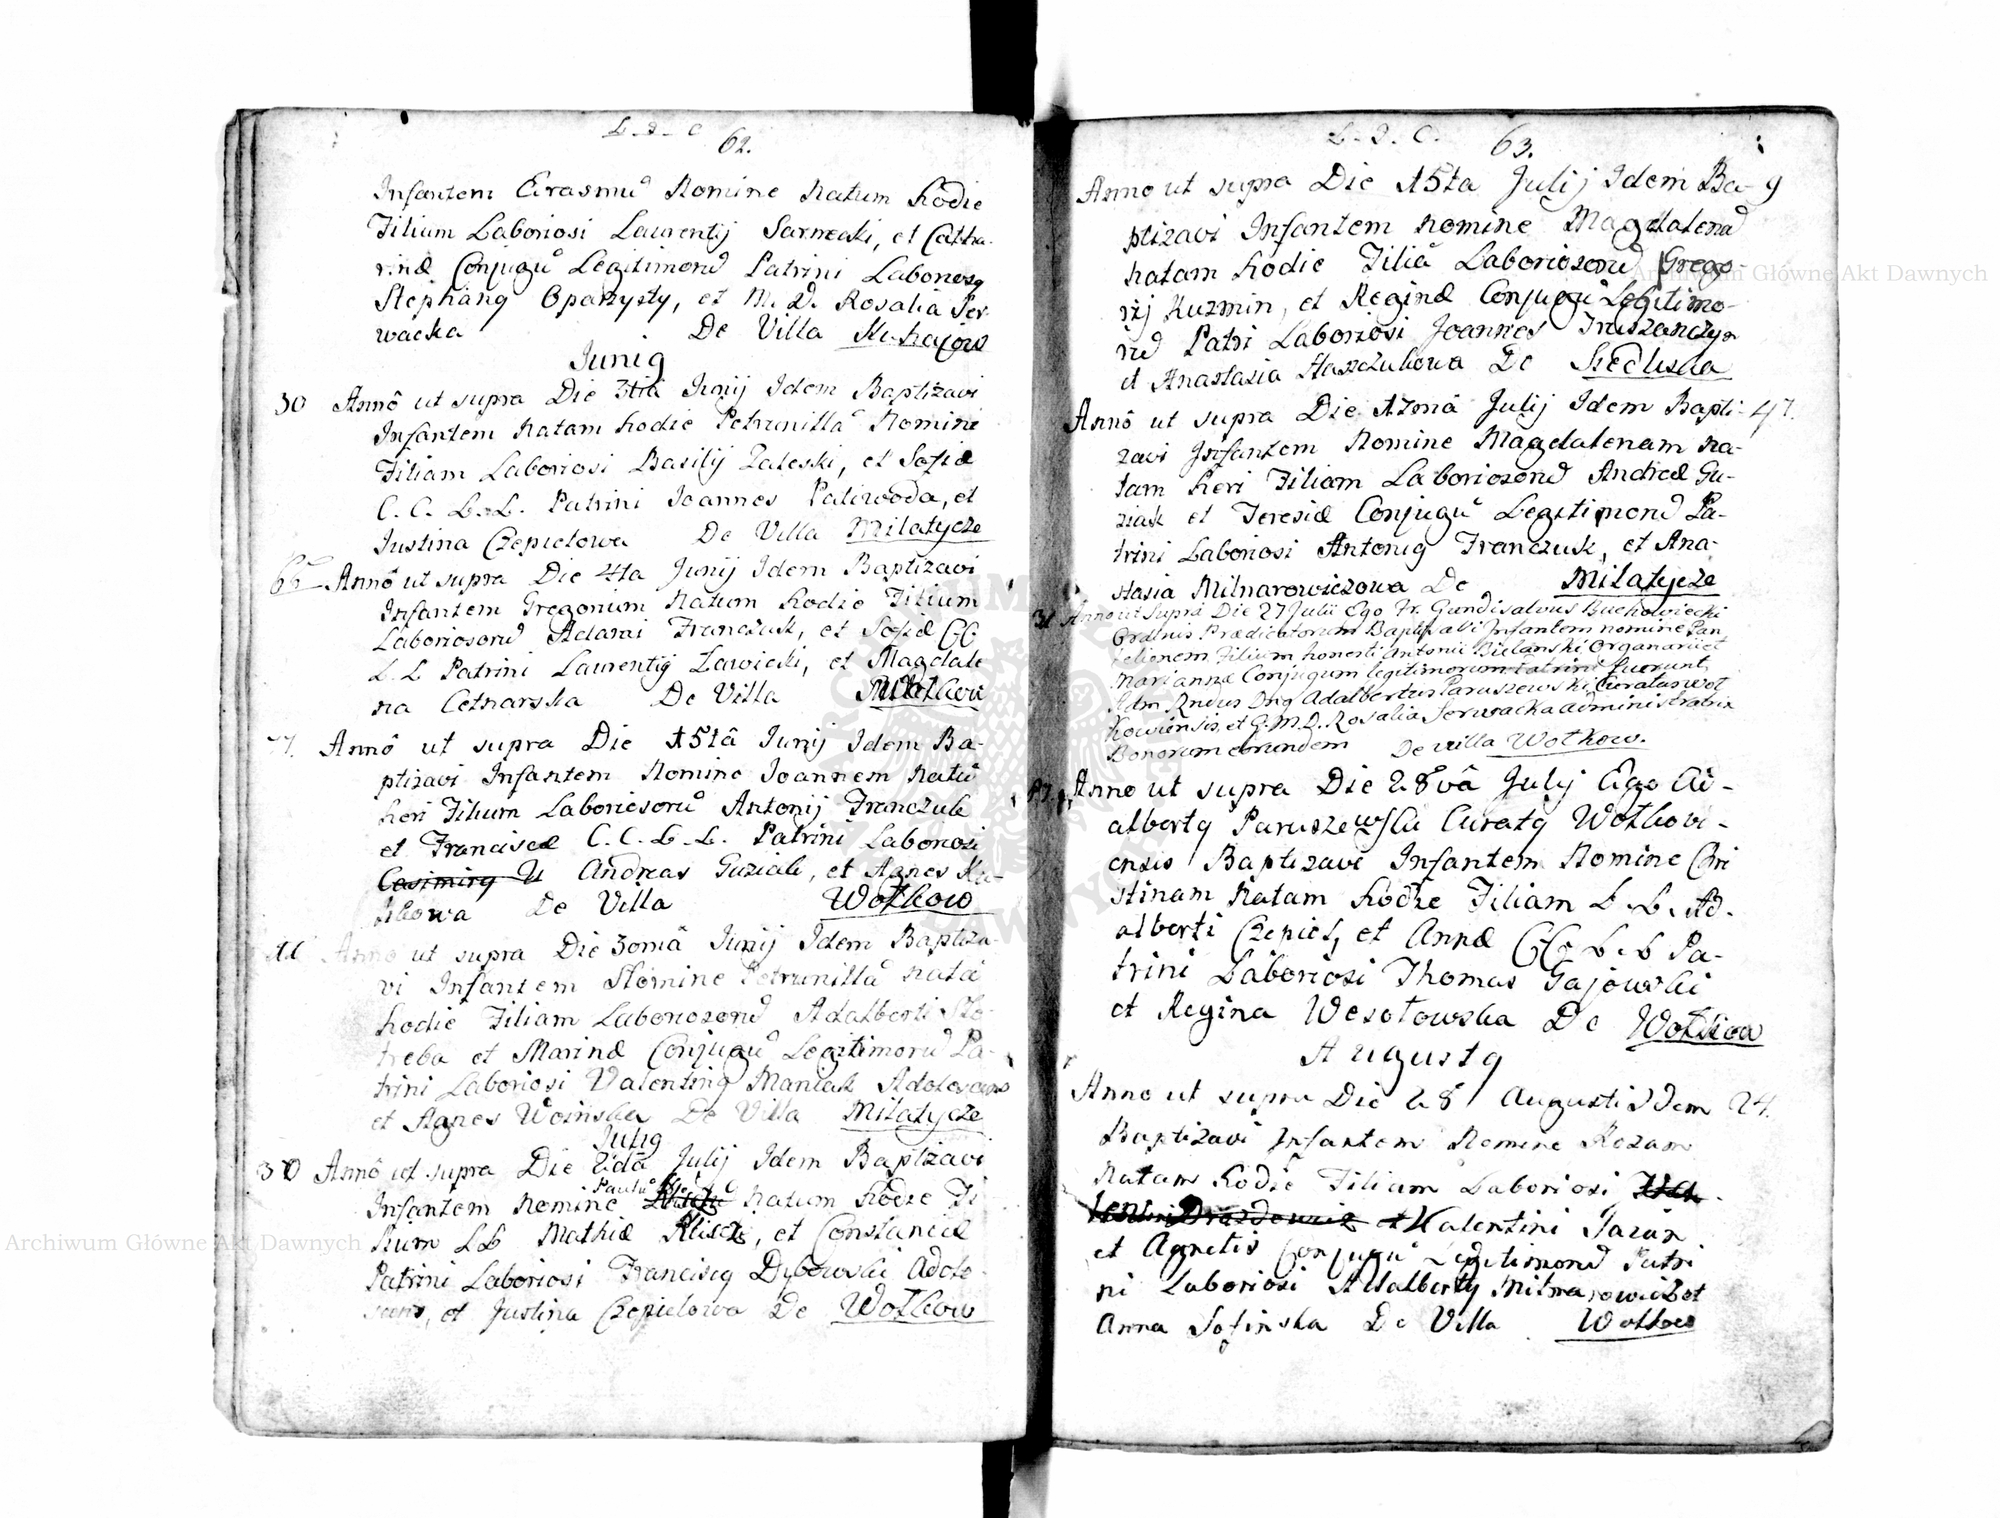 L. I. C. 62.
Infantem Erasmũ Nomine Natum hodie
Filium Laboriosi Laurentij Sarnecki, et Catha-
rinæ Conjugũ Legitimorũ Patrini Laboriosq
Stephanq Oparzysty, et M. D. Rosalia Ser-
wacka De Villa
Juniq
30 Annô ut supra Die 3tiâ Junij Idem Baptizavi
Infantem Natam hodie Petrunillã Nomine
Filiam Laboriosi Basilij Zaleski, et Sofiæ
C. C. L. L. Patrini Joannes Paliwoda, et
Justina Czepielowa De Villa Milatycze
66 Annô ut supra Die 4ta Junij Idem Baptizavi
Infantem Gregorium Natum hodie Filium
Laboriosorũ Adami Franczuk, et Sofiæ CC
L. L Patrini Laurentiq Zawicki, et Magdale
na Cetnarska De Villa
77. Annô ut supra Die 15tâ Junij Idem Ba-
ptizavi Infantem Nomine Joannem Natũ
heri Filium Laboriosorũ Antonij Franczuk
et Franciscæ C. C. L. L. Patrini Laboriosi
Casimirq U Andreas Guziak, et Agnes Ku-
libowa De Villa Wołkow
Anno ut supra Die 30mâ Junij Idem Baptiza-
vi Infantem Nomine Petrunillã natã
hodie Filiam Laboriosorũ Adalberti Sko-
treba et Marinæ Conjugũ Legitimorũ Pa-
trini Laboriosi Valentinq Maniak Adolescens
et Agnes Woinska De Villa Milatycze
Juliq
30 Annô ut supra Die 2dâ Julij Idem Baptizavi
Infantem Nomine Paulũ Natum hodie Fi
lium LL Mathiæ Klisz, et Constanciæ
Patrini Laboriosi Franciscq Dybowski Adole-
scens, et Justina Czepielowa De Wołkow
L. I. C. 63.
Anno ut supra Die 15ta Julij Idem Ba- 9
ptizavi Infantem nomine Magdalenã
natam hodie Filiã Laboriosorũ Grego-
rij Kuzmin, et Reginæ Conjugũ Legitimo-
rũ Patri Laboriosi Joannes Truszanczyn
et Anastasia Haszczukowa De Siedliska
Annô ut supra Die 17mâ Julij Idem Bapti- 47.
zavi Infantem Nomine Magdalenam na-
tam heri Filiam Laboriosorũ Andreæ Gu-
ziak et Teresiæ Conjugũ Legitimorũ Pa-
trini Laboriosi Antoniq Franczuk, et Ana-
stasia Milnarowiczowa De Milatycze
31 Anno ut Supra Die 27 Julii Ego Fr. Gundisalvus Buchowiecki
Ordinis Prædicatorum Baptizavi Infantem nomine Pan
telionem Filium honesti Antonii Bielanski Organarii et
Mariannæ Conjugum legitimorum Patrini fuerunt
Adm Rndus Dnq Adalbertus Paruszewski Curatus Woł
kowiensis, et G. M. D. Rosalia Serwacka administratrix
Bonorum eorundem De villa Wołkow.
Anno ut supra Die 28vâ Julij Ego Ad-
albertq Paruszewski Curatq Wołkowi-
ensis Baptizavi Infantem Nomine Chri
stinam Natam hodie Filiam L. L. Ad-
alberti Czepiel, et Annæ CC L. L Pa-
trini Laboriosi Thomas Gajowski
et Regina Wesołowska De Wołkow
Augustq
Anno ut supra Die 28 Augusti Idem 24.
Baptizavi Infantem Nomine Rozam
Natam hodie Filiam Laboriosi
Valentini Jazan
et Agnetis Conjugũ Legitimorũ Patri
ni Laboriosi Adalbertq Milnarowicz et
Anna Sofinska De Villa Wołkow
Archiwum Główne Akt Dawnych
Archiwum Główne Akt Dawnych